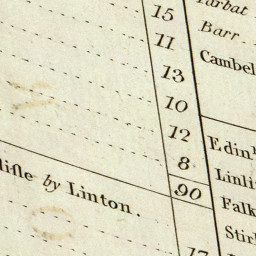 15
11
13
10
12
8
90
by Linton.
17
Tarbat
Barr
Cambel
Edinb
Linli
Falk
Stirl